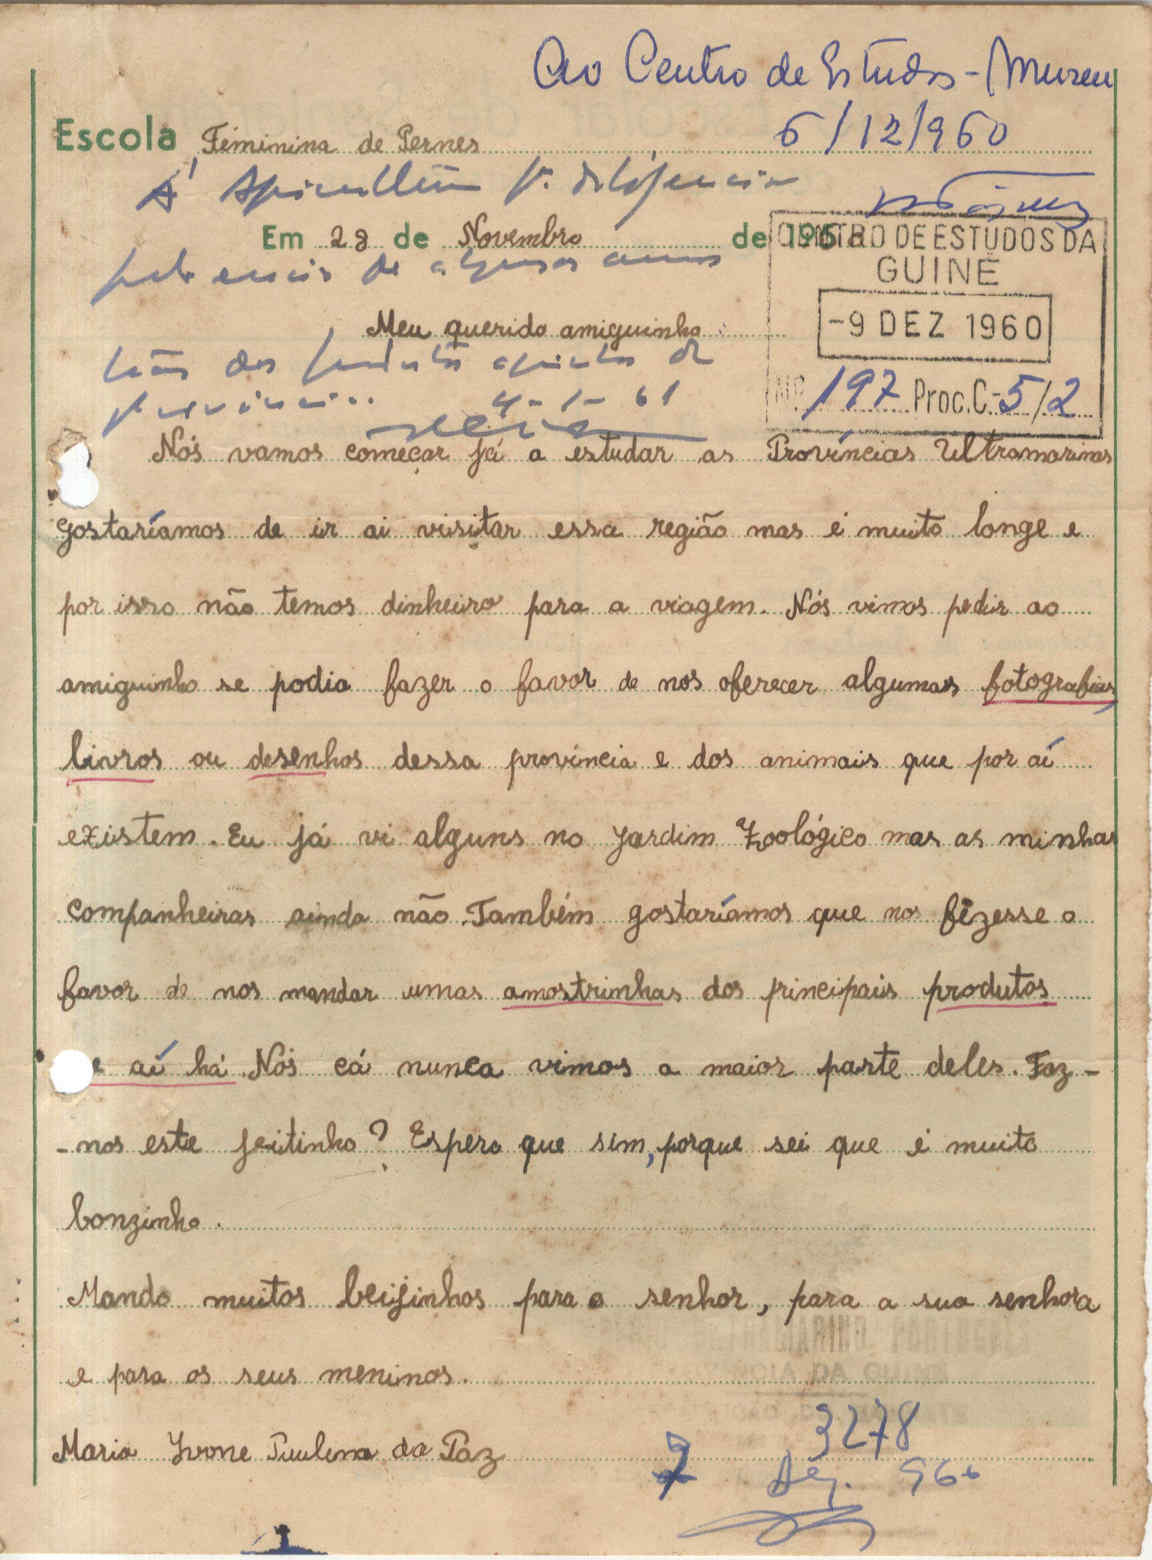 Ao Centro de Estudos - Museu
6/12/960
Escola Feminina de Pernes
À Apicultura
Em 28 de Novembro de 196
CENTRO DE ESTUDOS DA
GUINÉ
-9 DEZ 1960
Nº 197 Proc. C-5/2
Meu querido amiguinho
dos produtos
4-1-61
Nós vamos começar já a estudar as Províncias Ultramarinas
gostaríamos de ir ai visitar essa região mas é muito longe e
por isso não temos dinheiro para a viagem. Nós vimos pedir ao
amiguinho se podia fazer o favor de nos oferecer algumas fotografias,
livros ou desenhos dessa província e dos animais que por aí
existem. Eu já vi alguns no Jardim Zoológico mas as minhas
companheiras ainda não. Também gostaríamos que nos fizesse o
favor de nos mandar umas amostrinhas dos principais produtos
e aí há. Nós cá nunca vimos a maior parte deles. Faz-
-nos este jeitinho? Espero que sim, porque sei que é muito
bonzinho.
Mando muitos beijinhos para o senhor, para a sua senhora
e para os seus meninos.
Maria Yvone Paulina da Paz
3278
7 Dez. 960